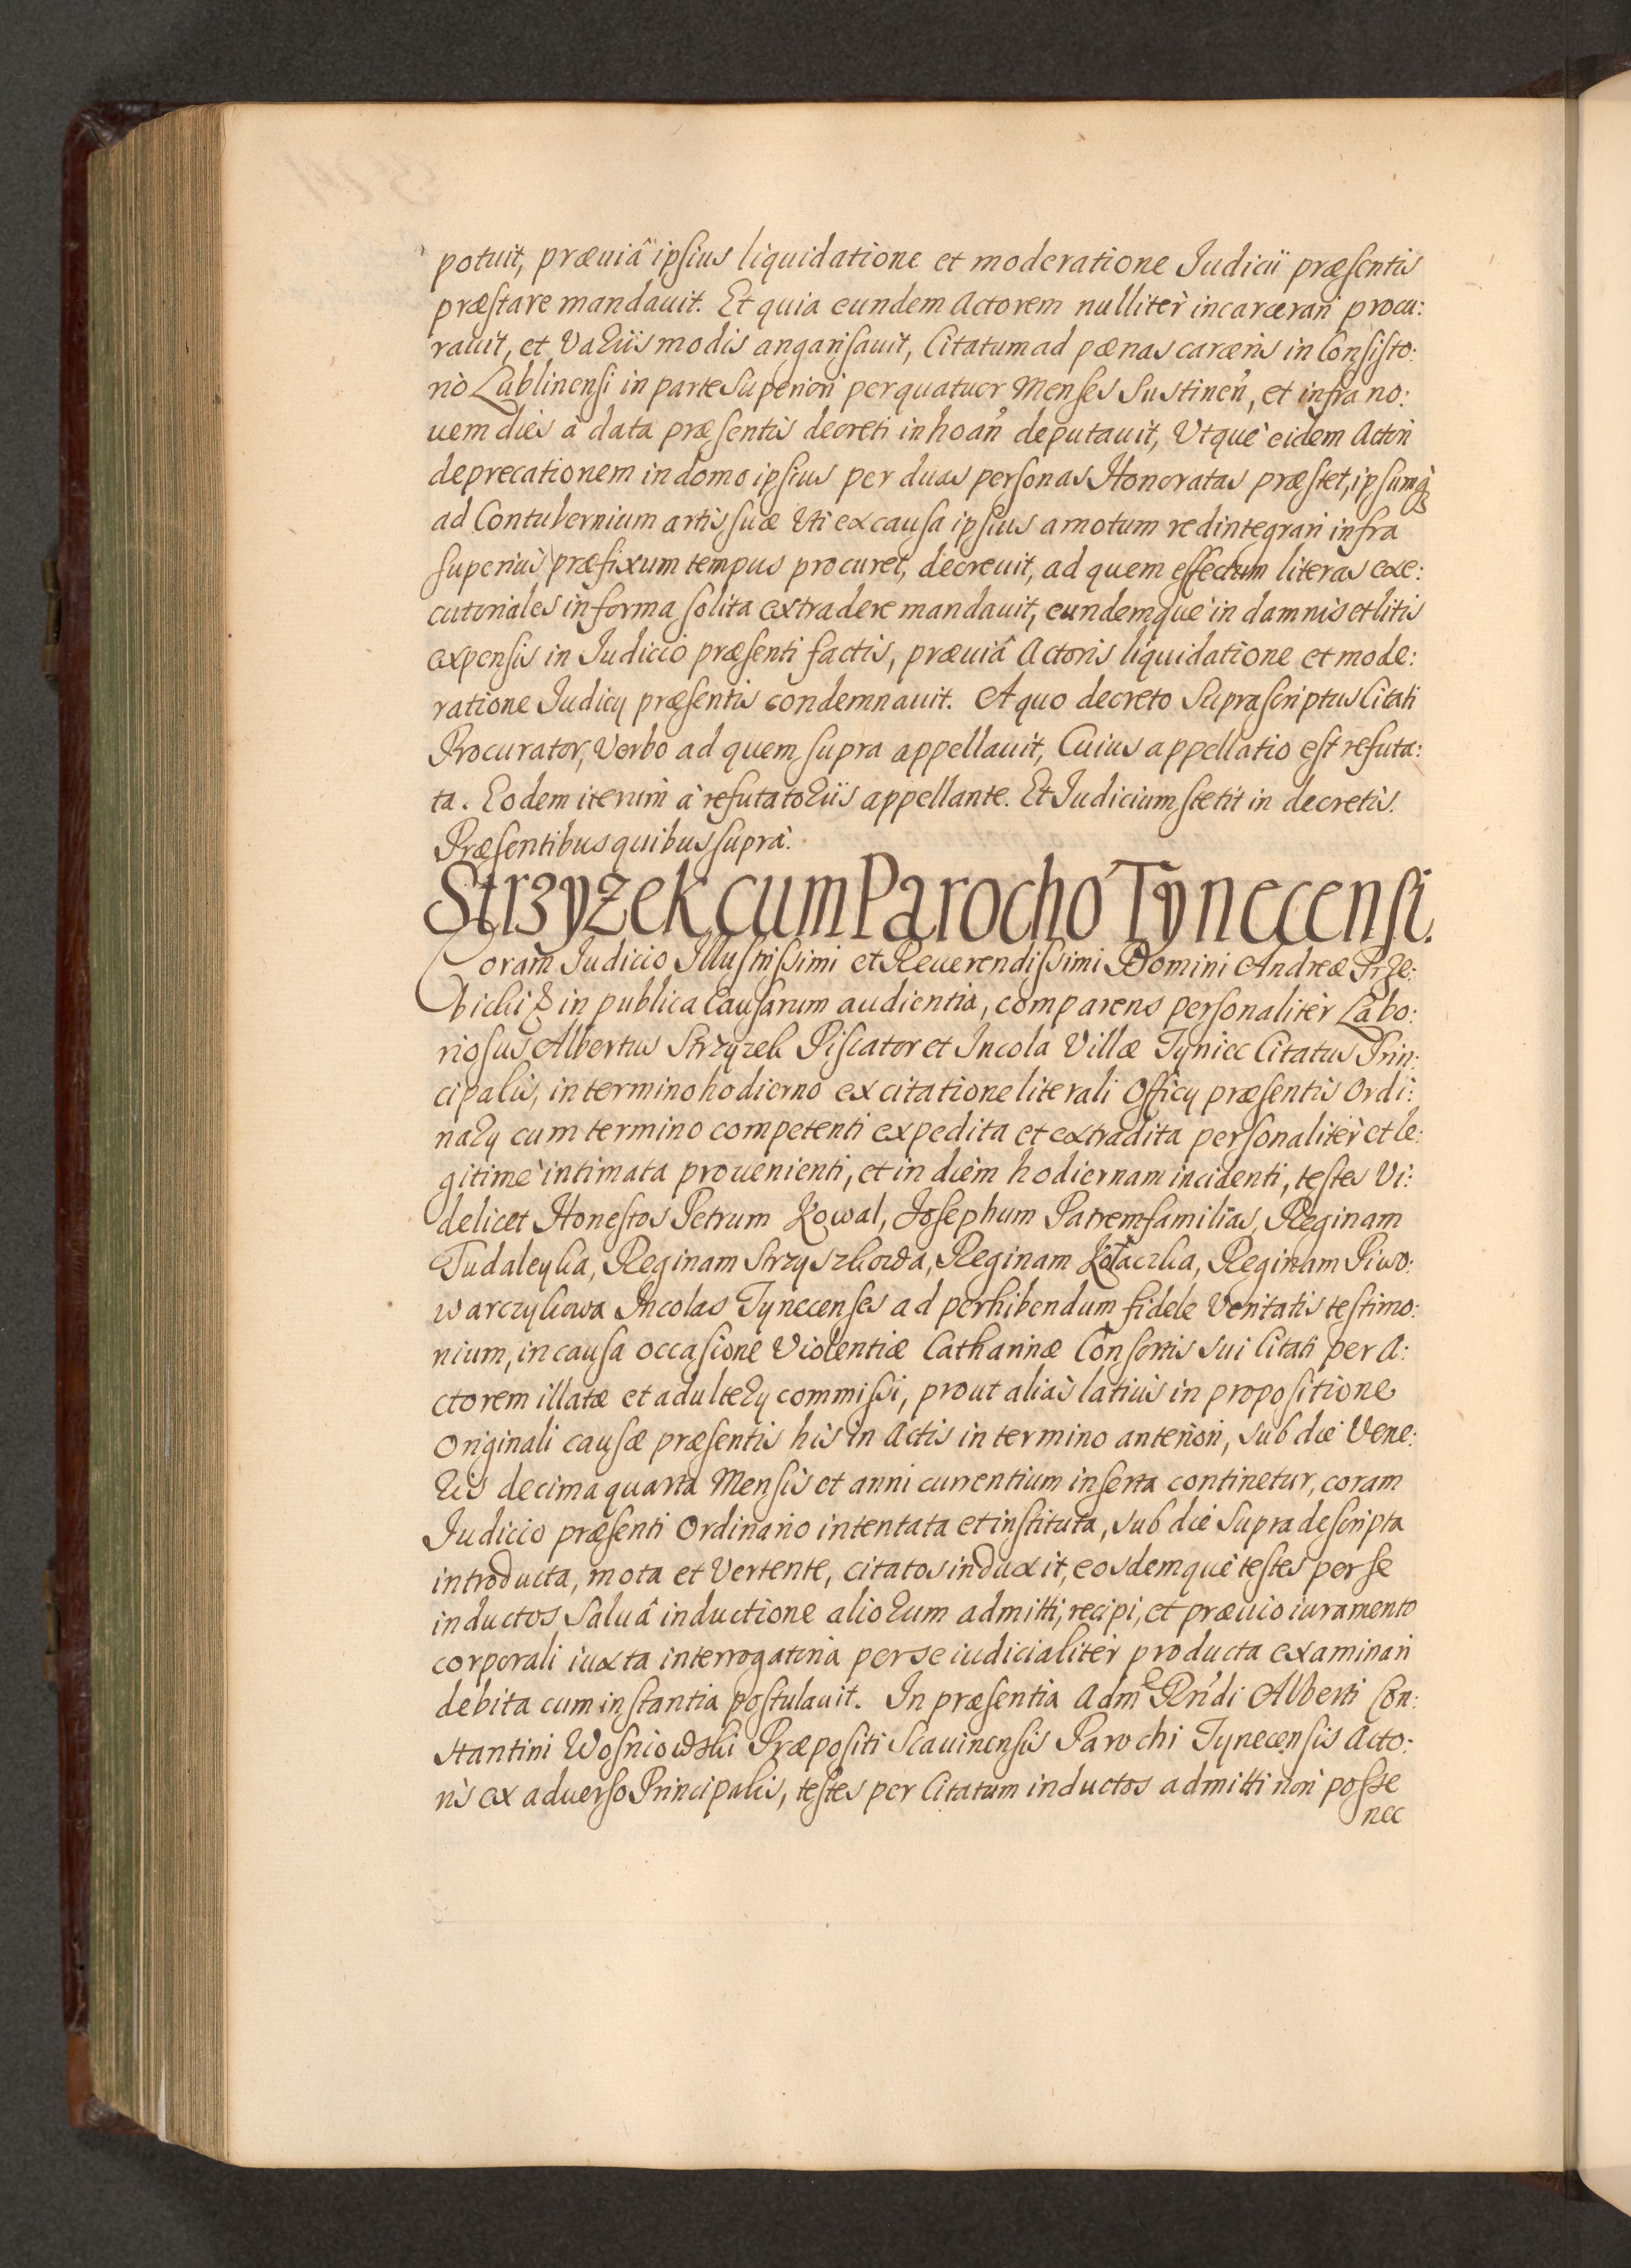 potuit, præuiâ ipsius liquidatione et moderatione Iudicii præsentis
præstare mandauit. Et quia eundem Actorem nullitèr incarcerari procu:
rauit, et Variis modis angarisauit, Citatum ad pænas carceris in Consisto:
rio Lublinensi in parte Superiori per quatuor Menses Sustinen, et infra no:
uem dies à data præsentis decreti inhoan deputauit, Utque eidem Actori
deprecationem in domo ipsius per duas personas Honoratas præstet, ipsumq
ad Contubernium artis suæ Uti ex causa ipsius amotum redintegrari infra
superius præfixum tempus procuret, decreuit, ad quem effectum literas exe:
cutoriales in forma solita extradere mandauit, eundemque in damnis et litis
expensis in Iudicio præsenti factis, præuiâ Actoris liquidatione et mode:
ratione Iudicy præsentis condemnauit. A quo decreto Suprascriptus Citati
Procurator, Verbo ad quem supra appellauit, Cuius appellatio est refuta:
ta. Eodem iterum à refutatoriis appellante. Et Iudicium stetit in decretis.
Præsentibus quibus supra.
Strzyzek cum Parocho Tynecensi.
Coram Iudicio Illustrissimi et Reuerendissimi Domini Andreæ Trze:
bicki & in publica Causarum audientia, comparens personalitèr Labo:
riosus Albertus Strzyzek Piscator et Incola Villæ Tyniec Citatus Prin:
cipalis, in termino hodierno ex citatione literali Officy præsentis Ordi:
nary cum termino competenti expedita et extradita personalitèr et le:
gitimè intimata prouenienti, et in diem hodiernam incidenti, testes Vi:
delicet Honestos Petrum Kowal, Josephum Patremfamilias, Reginam
Tudaleyka, Reginam Strzyszkowa, Reginam Kołaczka, Reginam Piwo:
warczykowa Incolas Tynecenses ad perhibendum fidele Veritatis testimo:
nium, in causa occasione Violentiæ Catharinæ Consortis sui Citati per A:
ctorem illatæ et adultery commissi, prout aliàs latius in propositione
Originali causæ præsentis his in Actis in termino anteriori, sub die Vene:
ris decima quarta Mensis et anni currentium inserta continetur, coram
Iudicio præsenti Ordinario intentata et instituta, sub die Supra descripta
introducta, mota et Vertente, citatos induxit, eosdemque testes per se
inductos, Saluâ inductione aliorum admitti, recipi, et præuio iuramento
corporali iuxta interrogatoria per se iudicialitèr producta examinari
debita cum instantia postulauit. In præsentia Adm Rndi Alberti Con:
stantini Wosniowski Præpositi Scauinensis Parochi Tynecensis Acto:
ris ex aduerso Principalis, testes per Citatum inductos admitti non posse
nec